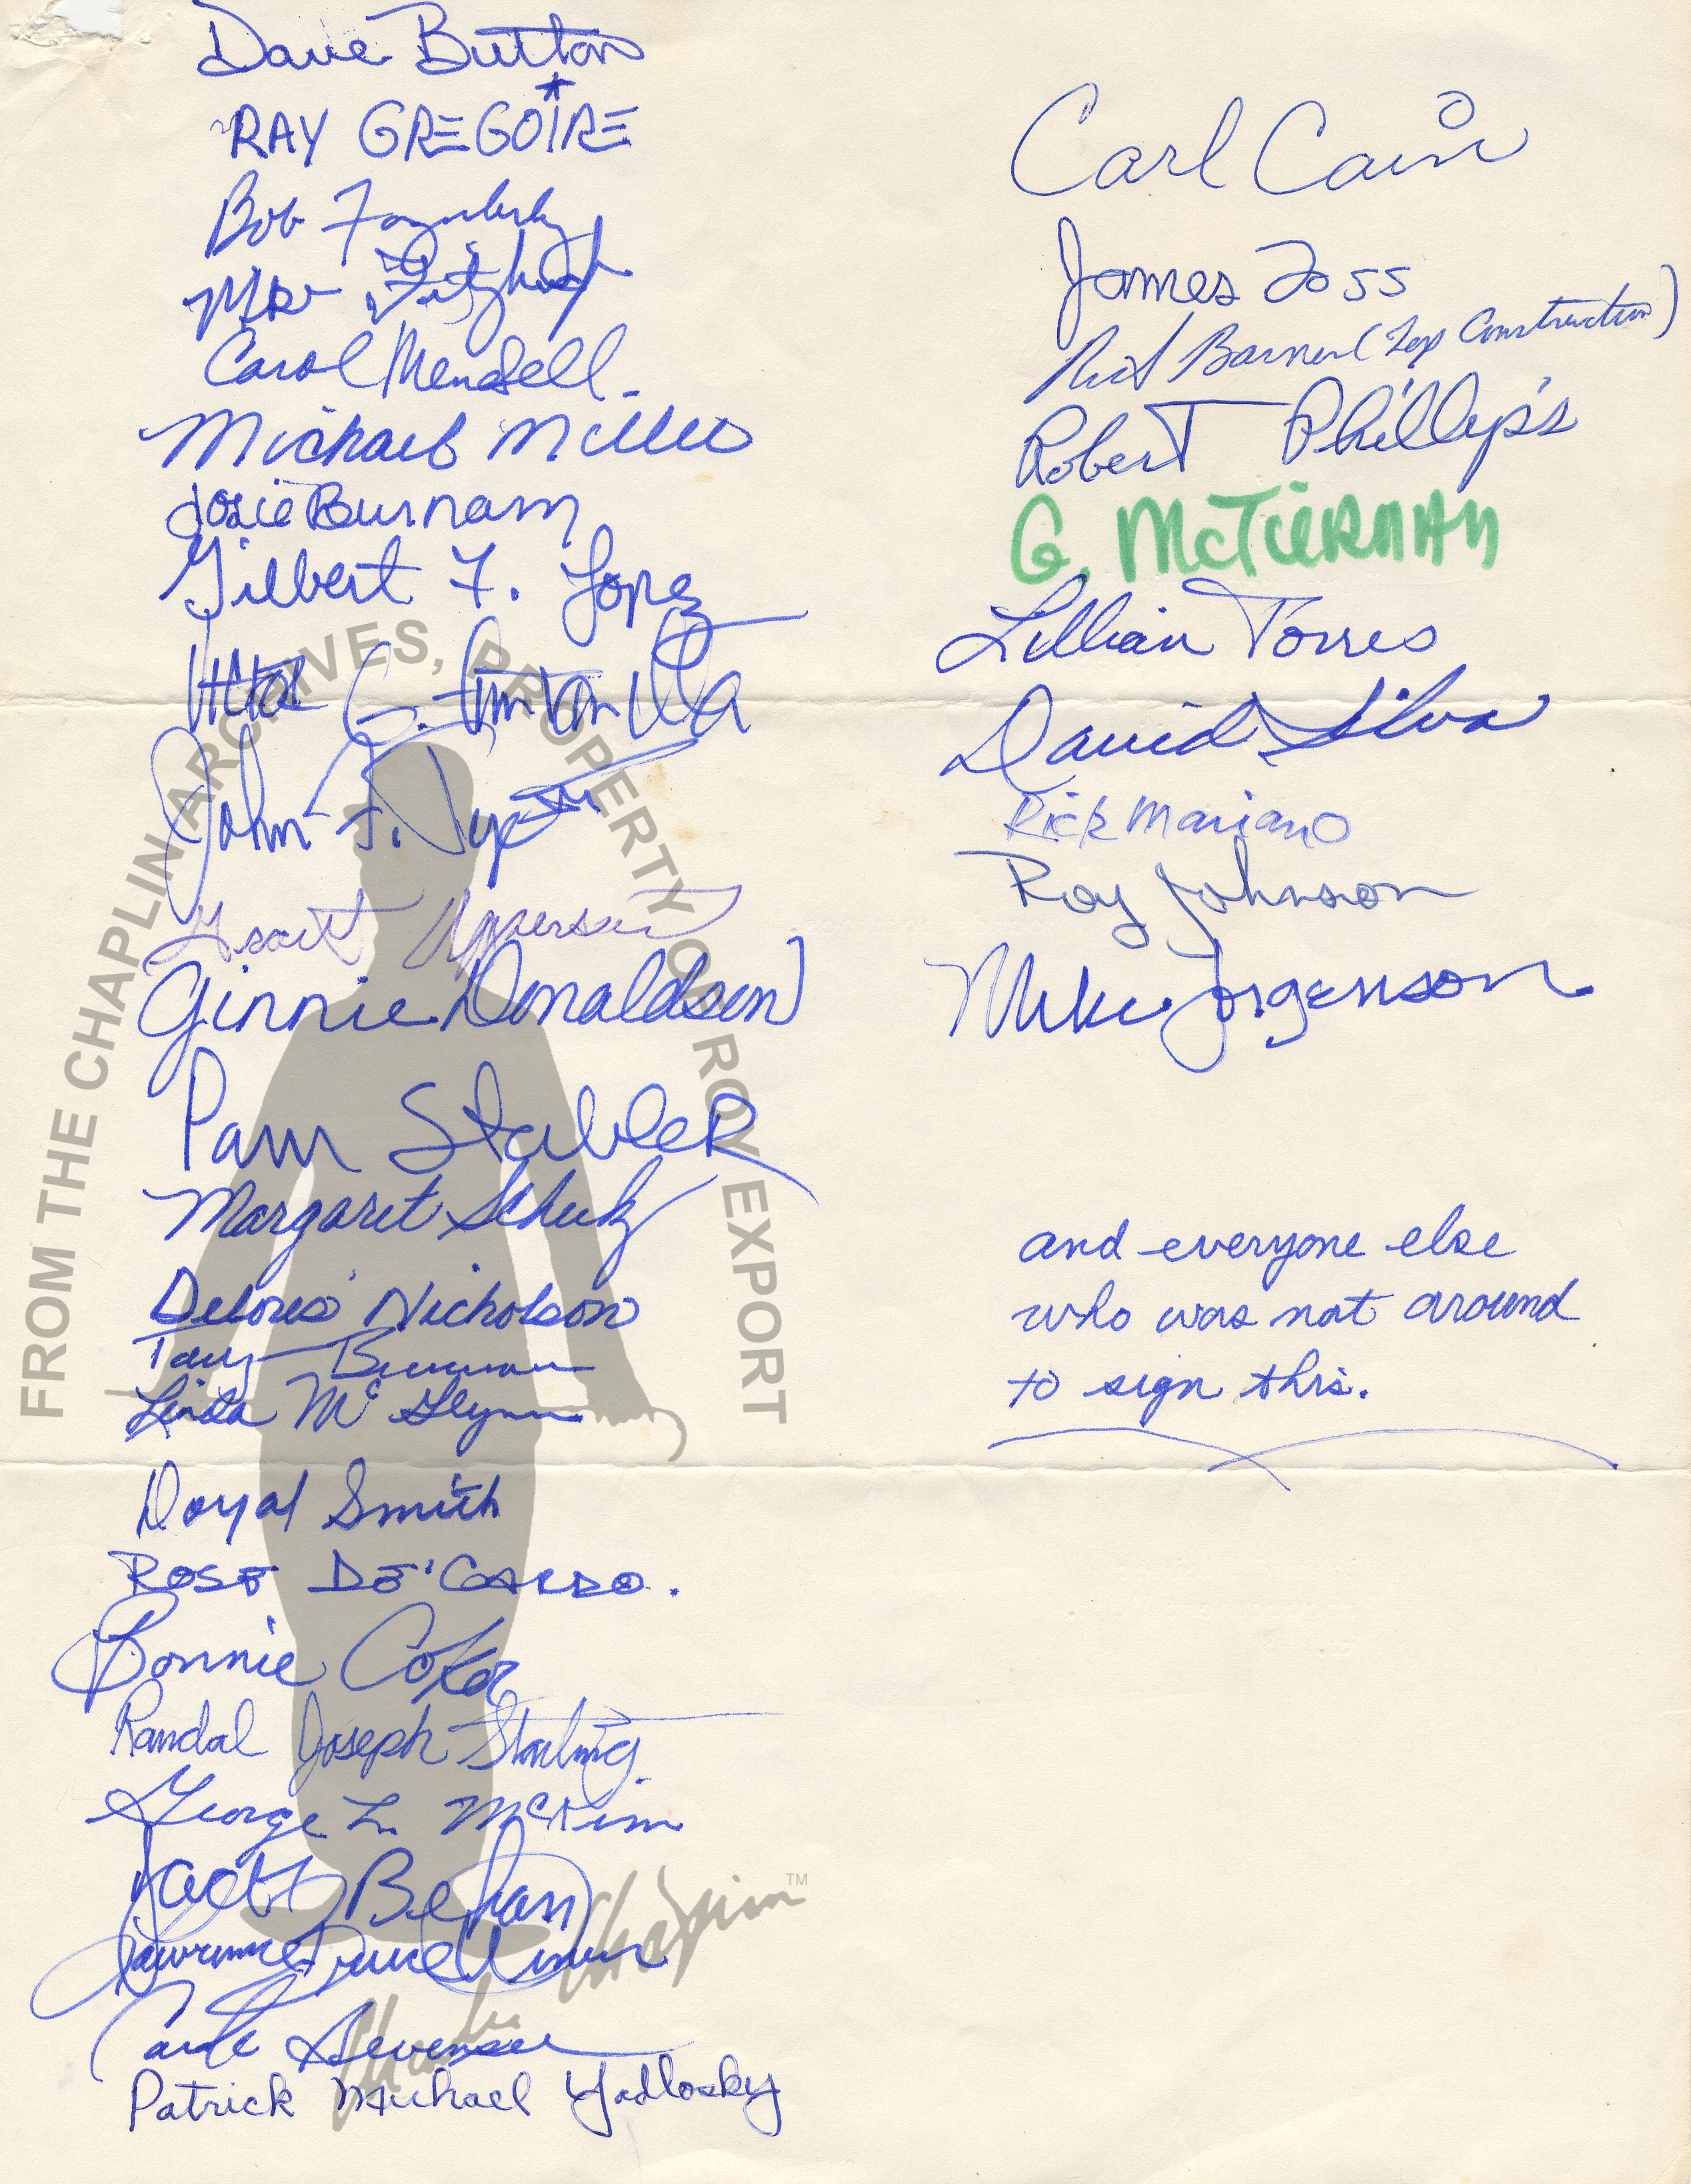 Dave Button
RAY GREGOIRE
Bob
Mrs Fitzhugh
Carol Mendell.
Michael Miller
Josie Burnam
Gilbert F. Lopez
C.
John F. Nye III
Grant
Ginnie Donaldson
Pam Stabler
Margaret Schulz
Delores Nicholson
Linda McGlynn
Doyal Smith
ROSE DE'CARDO.
Bonnie Coker
Randal Joseph Starling
George L. McKim
Behan
Lawrence
Carole Stevenson
Patrick Michael Yadlosky
Carl Cain
James Foss
Barner (Zep Construction)
Robert Phillips
G. McTIERNAN
Lillian Torres
David Silva
Rick Mariano
Roy Johnson
Mike Jorgenson
and everyone else
who was not around
to sign this.
FROM THE CHAPLIN ARCHIVES, PROPERTY OF ROY EXPORT
Charlie Chaplin™